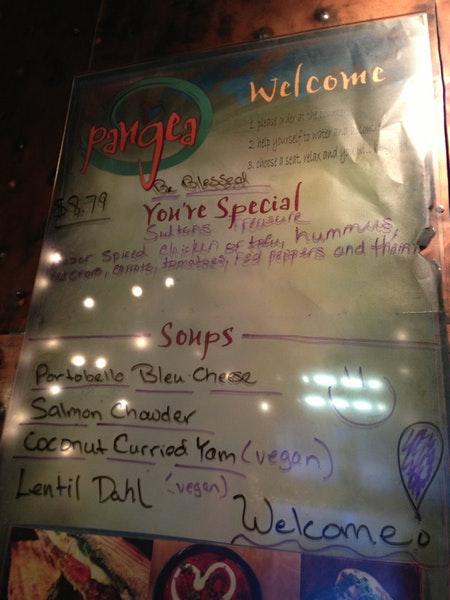 pangea
Welcome
1. please order at the counter
2. help yourself to water and
3. choose a seat, relax and
Be Blessed!
$8.79
You're Special
Sultans Treasure
Spiced chicken or tofu, hummus,
carrots, tomatoes, red peppers and
Soups
Portobello Bleu Cheese
Salmon Chowder
Coconut Curried Yam (vegan)
Lentil Dahl (vegan)
Welcome!